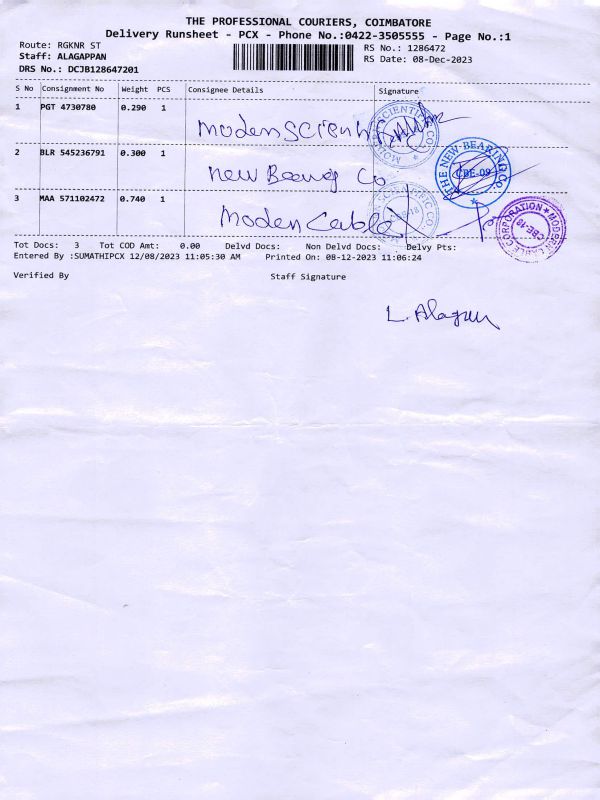 THE PROFESSIONAL COURIERS, COIMBATORE
Delivery Runsheet - PCX - Phone No.:0422-3505555 - Page No.:1
Route: RGKNR ST
RS No.: 1286472
Staff: ALAGAPPAN
RS Date: 08-Dec-2023
DRS No.: DCJB128647201
S No Consignment No Weight PCS Consignee Details Signature
1 PGT 4730780 0.290 1
moden scienti
MODERN SCIENTIFIC CO.
2 BLR 545236791 0.300 1
new Co
THE NEW BEARING CO.
CBE-09
3 MAA 571102472 0.740 1
moden Cable
SCIENTIFIC CO.
CBE-18
MODERN CABLE CORPORATION
CBE-18
Tot Docs: 3 Tot COD Amt: 0.00 Delvd Docs: Non Delvd Docs: Delvy Pts:
Entered By :SUMATHIPCX 12/08/2023 11:05:30 AM Printed On: 08-12-2023 11:06:24
Verified By Staff Signature
L. Alagun